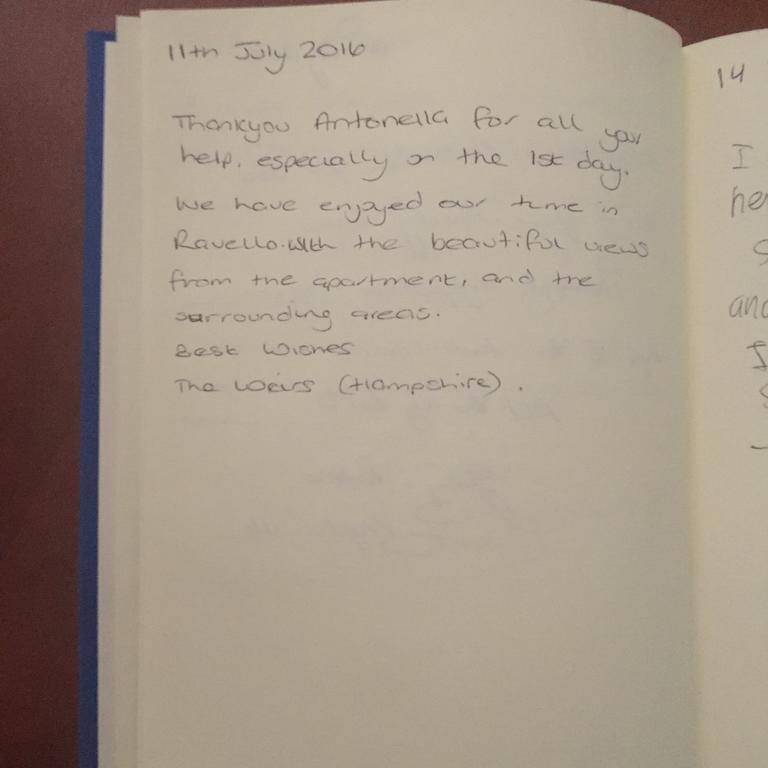 11th July 2016
Thankyou Antonella for all your
help, especially on the 1st day.
We have enjoyed our time in
Ravello.with the beautiful views
from the apartment, and the
surrounding areas.
Best Wishes
The Weirs (Hampshire).
14
I
and